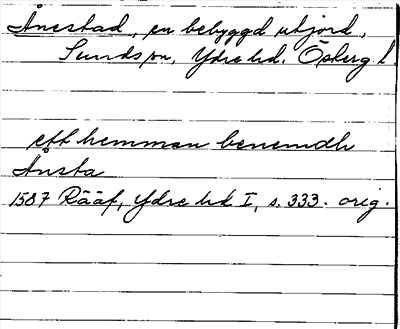 Ånestad, en bebyggd utjord,
Sunds sn, Ydre hd. Öberg l.
ett hemman benemdh
Ånsta
1587 Rääf, Ydre hd I, s. 333. orig.